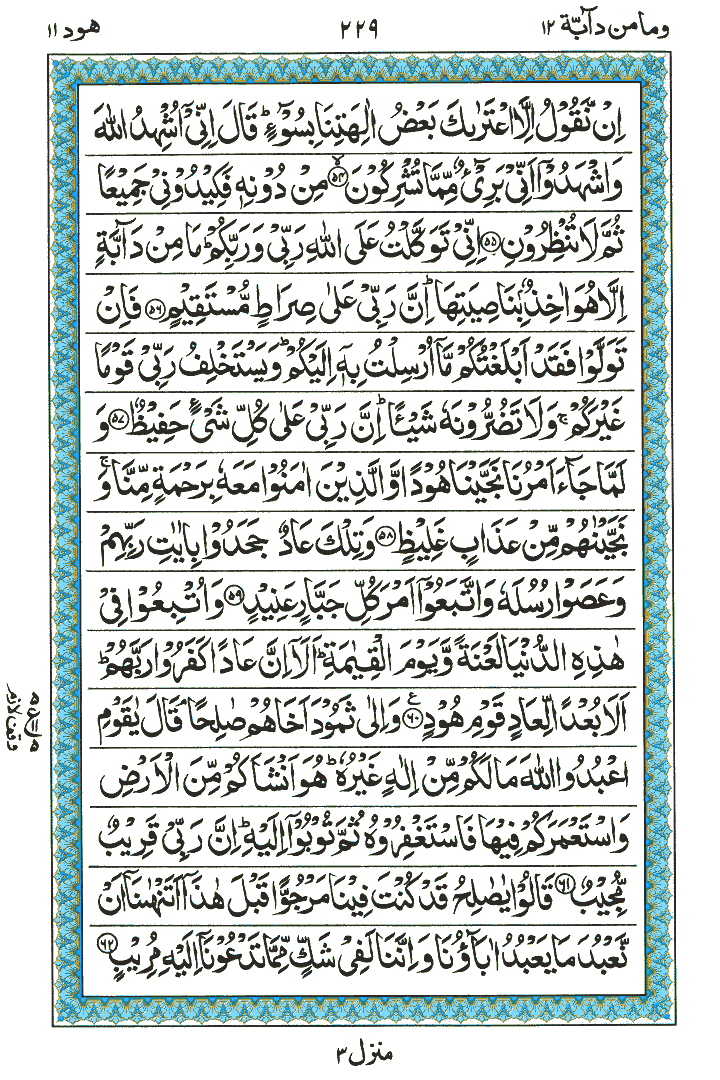 ومامن دآبّة ١٢
٢٢٩
هود ١١
اِنۡ نَّقُوۡلُ اِلَّا اعۡتَرٰٮكَ بَعۡضُ اٰلِهَتِنَا بِسُوۡٓءٍ‌ ؕ قَالَ اِنِّىۡۤ اُشۡهِدُ اللّٰهَ
وَاشۡهَدُوۡۤا اَنِّىۡ بَرِىۡٓءٌ مِّمَّا تُشۡرِكُوۡنَ ۙ‏﴿۵۴﴾ مِنۡ دُوۡنِهٖ‌ فَكِيۡدُوۡنِىۡ جَمِيۡعًا
ثُمَّ لَا تُنۡظِرُوۡنِ‏﴿۵۵﴾ اِنِّىۡ تَوَكَّلۡتُ عَلَى اللّٰهِ رَبِّىۡ وَرَبِّكُمۡ‌ ؕ مَا مِنۡ دَآبَّةٍ
اِلَّا هُوَ اٰخِذٌۢ بِنَاصِيَتِهَا‌ ؕ اِنَّ رَبِّىۡ عَلٰى صِرَاطٍ مُّسۡتَقِيۡمٍ‏﴿۵۶﴾ فَاِنۡ
تَوَلَّوۡا فَقَدۡ اَبۡلَغۡتُكُمۡ مَّاۤ اُرۡسِلۡتُ بِهٖۤ اِلَيۡكُمۡ‌ ؕ وَيَسۡتَخۡلِفُ رَبِّىۡ قَوۡمًا
غَيۡرَكُمۡ‌ ۚ وَلَا تَضُرُّوۡنَهٗ شَيۡـًٔـا‌ ؕ اِنَّ رَبِّىۡ عَلٰى كُلِّ شَىۡءٍ حَفِيۡظٌ‏﴿۵۷﴾ وَ
لَمَّا جَآءَ اَمۡرُنَا نَجَّيۡنَا هُوۡدًا وَّالَّذِيۡنَ اٰمَنُوۡا مَعَهٗ بِرَحۡمَةٍ مِّنَّا‌ ۚ وَ
نَجَّيۡنٰهُمۡ مِّنۡ عَذَابٍ غَلِيۡظٍ‏﴿۵۸﴾ وَتِلۡكَ عَادٌ‌ جَحَدُوۡا بِاٰيٰتِ رَبِّهِمۡ
وَعَصَوۡا رُسُلَهٗ وَاتَّبَعُوۡۤا اَمۡرَ كُلِّ جَبَّارٍ عَنِيۡدٍ‏﴿۵۹﴾ وَاُتۡبِعُوۡا فِىۡ
هٰذِهِ الدُّنۡيَا لَعۡنَةً وَّيَوۡمَ الۡقِيٰمَةِ‌ ؕ اَلَاۤ اِنَّ عَادًا كَفَرُوۡا رَبَّهُمۡ‌ ؕ
اَلَا بُعۡدًا لِّعَادٍ قَوۡمِ هُوۡدٍ‏﴿۶۰﴾ ع وَاِلٰى ثَمُوۡدَ اَخَاهُمۡ صٰلِحًا‌ۘ قَالَ يٰقَوۡمِ
اعۡبُدُوا اللّٰهَ مَا لَكُمۡ مِّنۡ اِلٰهٍ غَيۡرُهٗ‌ ؕ هُوَ اَنۡشَاَكُمۡ مِّنَ الۡاَرۡضِ
وَاسۡتَعۡمَرَكُمۡ فِيۡهَا فَاسۡتَغۡفِرُوۡهُ ثُمَّ تُوۡبُوۡۤا اِلَيۡهِ‌ ؕ اِنَّ رَبِّىۡ قَرِيۡبٌ
مُّجِيۡبٌ‏﴿۶۱﴾ قَالُوۡا يٰصٰلِحُ قَدۡ كُنۡتَ فِيۡنَا مَرۡجُوًّا قَبۡلَ هٰذَآ‌ اَتَنۡهٰٮنَاۤ اَنۡ
نَّعۡبُدَ مَا يَعۡبُدُ اٰبَآؤُنَا وَاِنَّنَا لَفِىۡ شَكٍّ مِّمَّا تَدۡعُوۡنَاۤ اِلَيۡهِ مُرِيۡبٍ‏﴿۶۲﴾
وقف لازم
منزل ٣